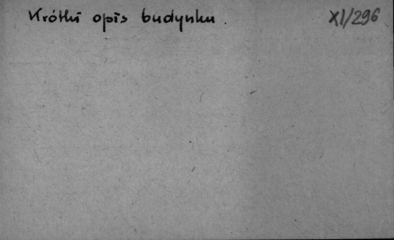 Krótki opis budynku.
XI/296